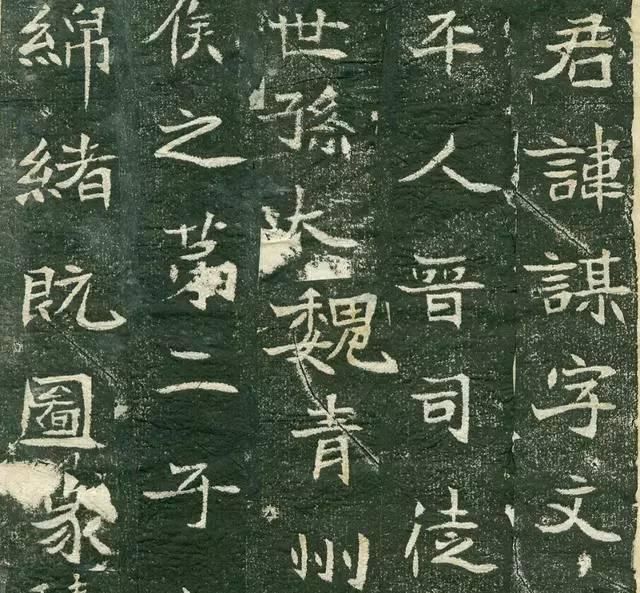 君諱謀字文
平人晉司徒
世孫大魏青州
侯之第二子
綿緒既圖